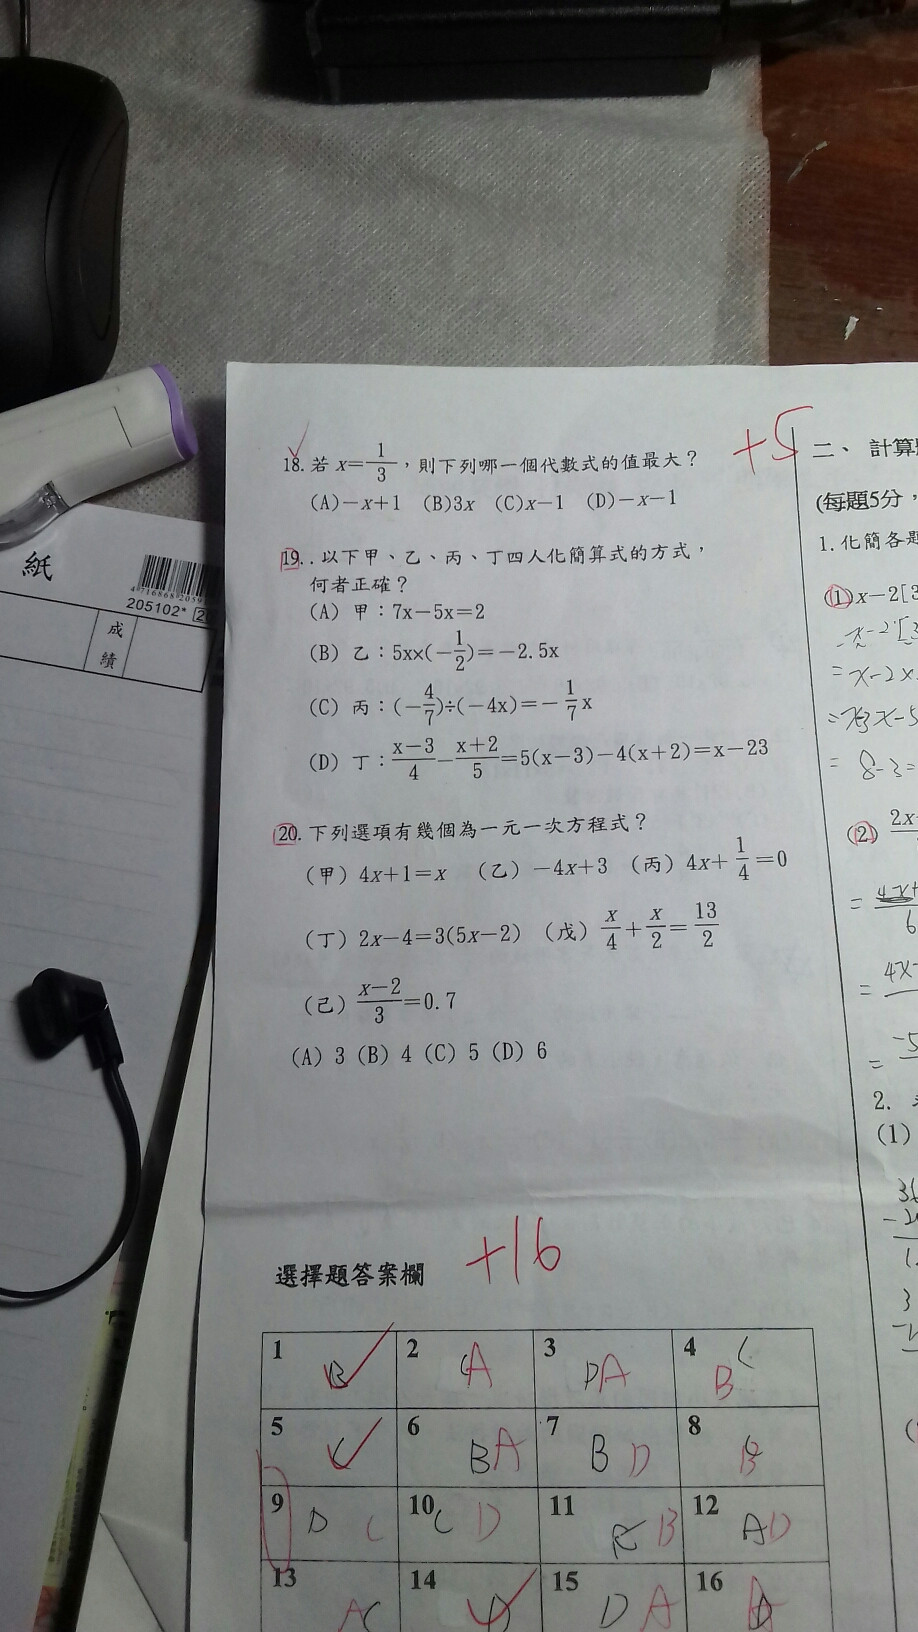 紙
205102*
成績
+5
18. 若 x=1/3，則下列哪一個代數式的值最大？
(A)-x+1 (B)3x (C)x-1 (D)-x-1
19.. 以下甲、乙、丙、丁四人化簡算式的方式，
何者正確？
(A) 甲：7x-5x=2
(B) 乙：5x×(-1/2)=-2.5x
(C) 丙：(-4/7)÷(-4x)=-1/7x
(D) 丁：(x-3)/4-(x+2)/5=5(x-3)-4(x+2)=x-23
20. 下列選項有幾個為一元一次方程式？
(甲) 4x+1=x (乙) -4x+3 (丙) 4x+1/4=0
(丁) 2x-4=3(5x-2) (戊) x/4+x/2=13/2
(己) (x-2)/3=0.7
(A) 3 (B) 4 (C) 5 (D) 6
二、 計算
(每題5分，
1. 化簡各題
(1) x-2[3
= x-2x
= 8-3=
(2) 2x
2.
(1)
選擇題答案欄 +16
1 B 2 A 3 D A 4 C B
5 C 6 B A 7 B D 8 B
9 D C 10 C D 11 B 12 A D
13 A C 14 D 15 D A 16 A